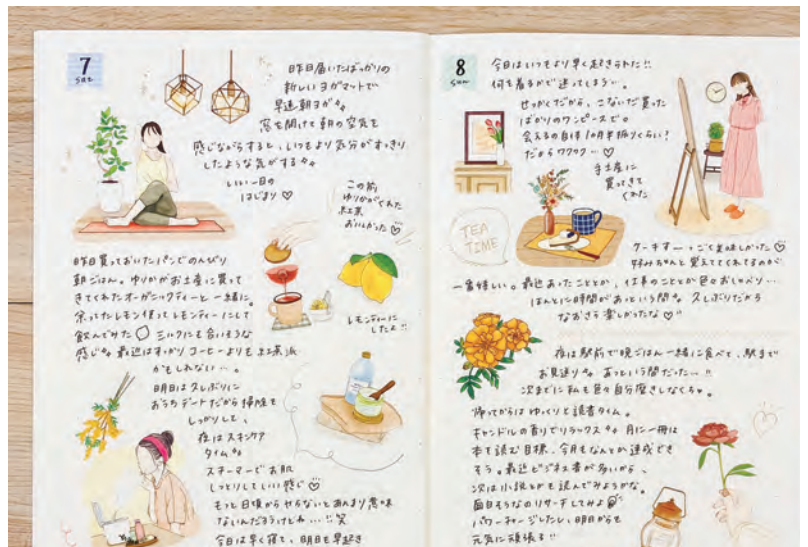 7
sat
昨日届いたばっかりの
新しいヨガマットで
早速朝ヨガ
窓を開けて朝の空気を
感じながらすると、いつもより気分がすっきり
したような気がする
いい一日の
はじまり♡
この前
ゆりかがくれた
紅茶
おいしかった♡
昨日買っておいたパンでのんびり
朝ごはん。ゆりかがお土産に買って
きてくれたオーガニックティーと一緒に。
余ったレモン使ってレモンティーにして
飲んでみた ミルクにも合いそうな
感じ 最近はすっかりコーヒーよりも紅茶派
かもしれない…。
レモンティーに
したよ!!
明日は久しぶりに
おうちデートだから掃除を
しっかりして、
夜はスキンケア
タイム
スチーマーでお肌
しっとりしていい感じ♡
もっと日頃からやらないとあんまり意味
ないんだろうけどね…!!笑
今日は早く寝て、明日も早起き
8
sun
今日はいつもより早く起きられた!!
何を着るかで迷ってしまう…。
せっかくだから、こないだ買った
ばかりのワンピースで。
会えるの自体1ヶ月半振りくらい?
だからワクワク…♡
手土産に
買ってきて
くれた
TEA
TIME
ケーキすーっごく美味しかった♡
好みちゃんと覚えててくれてるのが
一番嬉しい。最近あったこととか、仕事のこととか色々おしゃべり…
ほんとに時間があっという間 久しぶりだから
なおさら楽しかったな♡
夜は駅前で晩ごはん一緒に食べて、駅まで
お見送り あっという間だった…!!
次までに私も色々自分磨きしなくちゃ。
帰ってからはゆっくりと読書タイム。
キャンドルの香りでリラックス 月に一冊は
本を読む目標、今月もなんとか達成でき
そう。最近ビジネス書が多いから、
次は小説とかも読んでみようかな。
面白そうなのリサーチしてみよ
パワーチャージしたし、明日からも
元気に頑張る!!